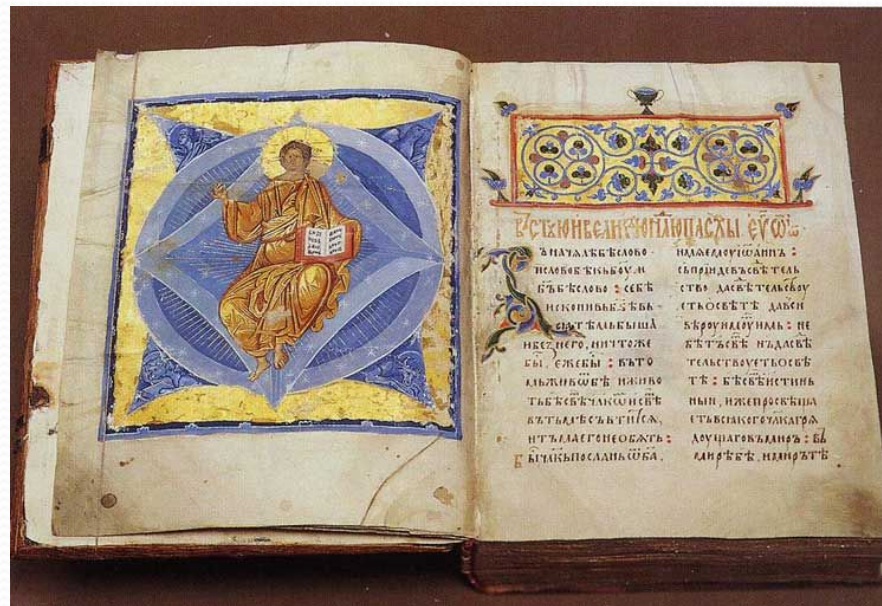 ВЪСТꙊЮИВЕЛИКꙊЮН҃ЛЮПАСХЫ ЕѴ҃ Ѿ ІѠ҃
ъначѧлѣбѣслово
исловобѣкьбоуи
б҃ъбѣслово : себѣ
искони
быша
ибезнего, ничтоже
бы҇, ежебы҇ : вьто
мьживѡ҇бѣ иживо
тьбѣсвѣ҇чл҃кѡ҇исвѣ҇
вътьмѣсьвтитсѧ,
итьмаегонеобѧть :
Бы҇чл҃кьпосланьѿб҃а,
имяемоуиѡаннь :
сьпрїидевьсвѣтель
ство дасвѣтельствоу
етьосвѣтѣ давси
вѣроуимоуимь : не
бѣтьсвѣ҇ нъдасвѣ
тельствоуетьосвѣ
тѣ : бѣсвѣ҇истинь
ныи, ижепросвѣща
етьвсакогочл҃кагря
доущаговьмирь : вь
мирѣбѣ, имирьтѣ